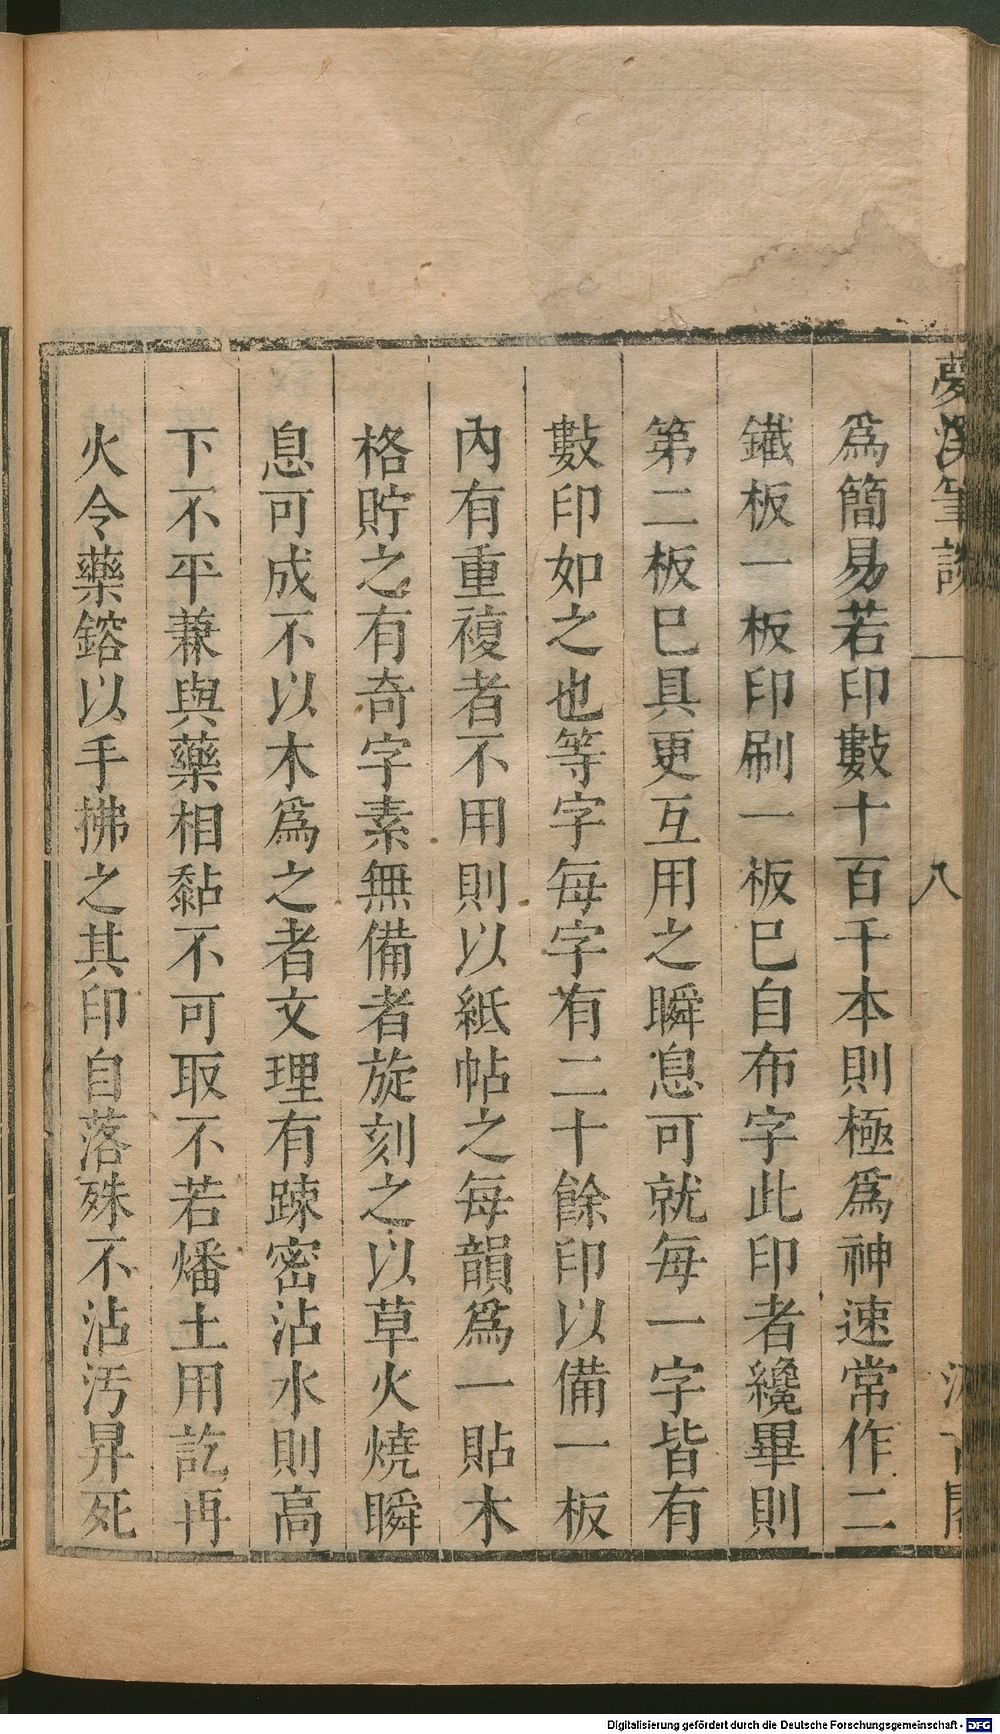 夢溪筆談
八
為簡易若印數十百千本則極為神速常作二
鐵板一板印刷一板已自布字此印者纔畢則
第二板已具更互用之瞬息可就每一字皆有
數印如之也等字每字有二十餘印以備一板
內有重複者不用則以紙帖之每韻為一貼木
格貯之有奇字素無備者旋刻之以草火燒瞬
息可成不以木為之者文理有踈密沾水則高
下不平兼與藥相黏不可取不若燔土用訖再
火令藥鎔以手拂之其印自落殊不沾汚昇死
Digitalisierung gefördert durch die Deutsche Forschungsgemeinschaft - DFG